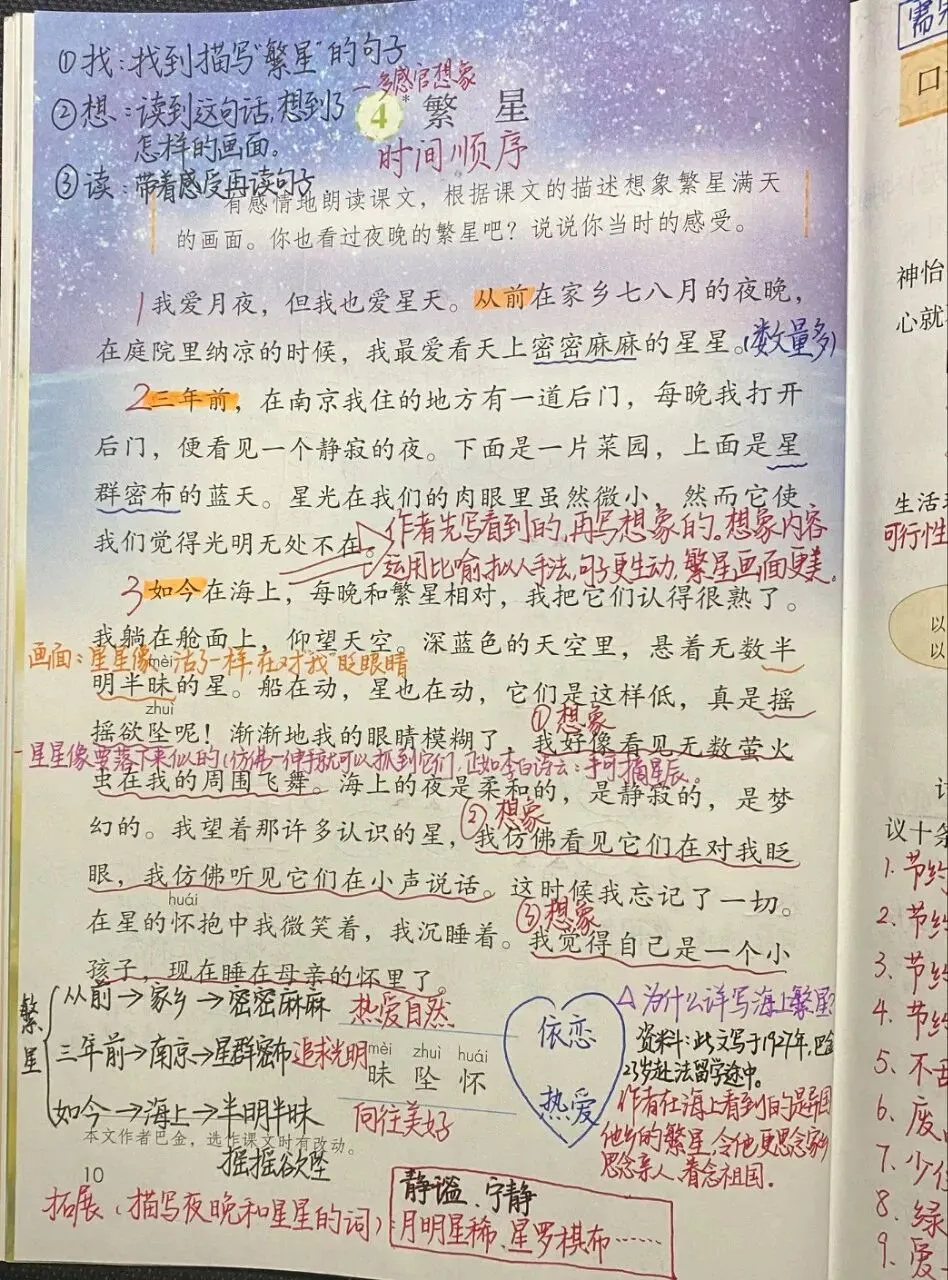 ①找：找到描写"繁星"的句子
②想：读到这句话，想到了
怎样的画面。
—多感官想象
③读：带着感受再读句子
4* 繁星
时间顺序
有感情地朗读课文，根据课文的描述想象繁星满天
的画面。你也看过夜晚的繁星吧？说说你当时的感受。
1我爱月夜，但我也爱星天。从前在家乡七八月的夜晚，
在庭院里纳凉的时候，我最爱看天上密密麻麻的星星。(数量多)
2三年前，在南京我住的地方有一道后门，每晚我打开
后门，便看见一个静寂的夜。下面是一片菜园，上面是星
群密布的蓝天。星光在我们的肉眼里虽然微小，然而它使
我们觉得光明无处不在。
作者先写看到的，再写想象的。想象内容
运用比喻拟人手法，句子更生动，繁星画面更美。
3如今在海上，每晚和繁星相对，我把它们认得很熟了。
我躺在舱面上，仰望天空。深蓝色的天空里，悬着无数半
画面：星星像活了一样，在对"我"眨眼睛
mèi
明半昧的星。船在动，星也在动，它们是这样低，真是摇
zhuì
摇欲坠呢！渐渐地我的眼睛模糊了，我好像看见无数萤火
①想象
星星像要落下来似的(仿佛一伸手就可以抓到它们，正如李白诗云：手可摘星辰。
虫在我的周围飞舞。海上的夜是柔和的，是静寂的，是梦
幻的。我望着那许多认识的星，我仿佛看见它们在对我眨
②想象
眼，我仿佛听见它们在小声说话。这时候我忘记了一切。
huái
在星的怀抱中我微笑着，我沉睡着。我觉得自己是一个小
③想象
孩子，现在睡在母亲的怀里了。
繁星
从前→家乡→密密麻麻 热爱自然
三年前→南京→星群密布 追求光明
如今→海上→半明半昧 向往美好
摇摇欲坠
mèi zhuì huái
昧 坠 怀
依恋
热爱
△为什么详写海上繁星？
资料：此文写于1927年，巴金
23岁赴法留学途中。
作者在海上看到的是异国
他乡的繁星，令他更思念家乡
思念亲人，眷念祖国。
本文作者巴金，选作课文时有改动。
10
拓展（描写夜晚和星星的词）
静谧、宁静
月明星稀、星罗棋布……
口
神怡
心就
生活
可行性
以
以
议十条
1.节约
2.节约
3.节约
4.节约
5.不
6.废
7.少
8.绿
9.爱